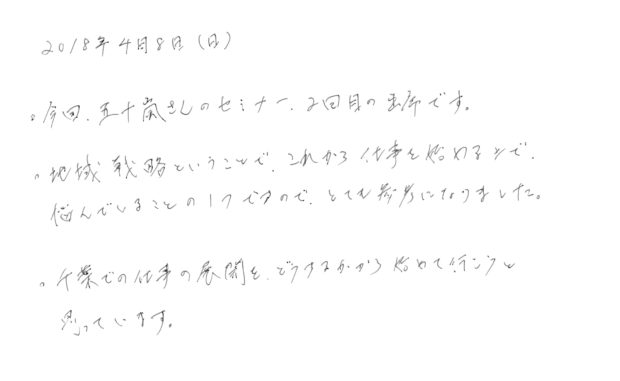 2018年4月8日（日）
。今回、五十嵐さんのセミナー、2回目の出席です。
。地域戦略ということで、これから仕事を始める上で、
悩んでいることの1つですので、とても参考になりました。
。千葉での仕事の展開を、どうするかから始めて行こうと
思っています。